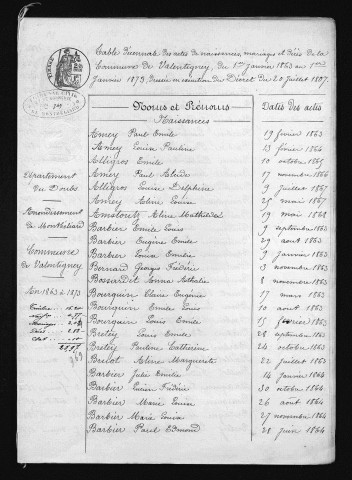 Table décennale des actes de naissances, mariages et décès de la
Commune de Valentigney, du 1er Janvier 1863 au 1er
Janvier 1873, dressée en exécution du Décret du 20 Juillet 1807.
Département
du Doubs
Arrondissement
de Montbéliard
Commune
de Valentigney
An 1863 à 1873
Noms et Prénoms
Dates des actes
Naissances
Amey Paul Emile 19 février 1863
Amey Louise Pauline 13 février 1864
Alligros Emile 10 octobre 1865
Amey Paul 17 novembre 1866
Alligros Louise Delphine 9 Juillet 1867
Amey Aline Louise 25 mai 1867
Amstoutz Aline Mathilde 19 mai 1868
Barbier Emile Louis 9 septembre 1863
Barbier Eugène Emile 29 août 1863
Barbier Louisa Emelie 9 Janvier 1863
Bernard Georges Frédéric 3 novembre 1863
Bossardet Anne Nathalie 8 novembre 1863
Bourquin Claire Eugénie 17 mars 1863
Bourquin Emile Louis 10 août 1863
Bourquin Louis Emile 15 février 1863
Bretey Louis Emile 28 septembre 1863
Bretey Pauline Catherine 24 octobre 1863
Brenot Aline Marguerite 22 Juillet 1864
Barbier Julie Emélie 14 Janvier 1864
Barbier Lucien Frédéric 30 octobre 1864
Barbier Marie Louise 26 août 1864
Barbier Marie Louisa 27 novembre 1864
Barbier Paul Edmond 28 Juin 1864